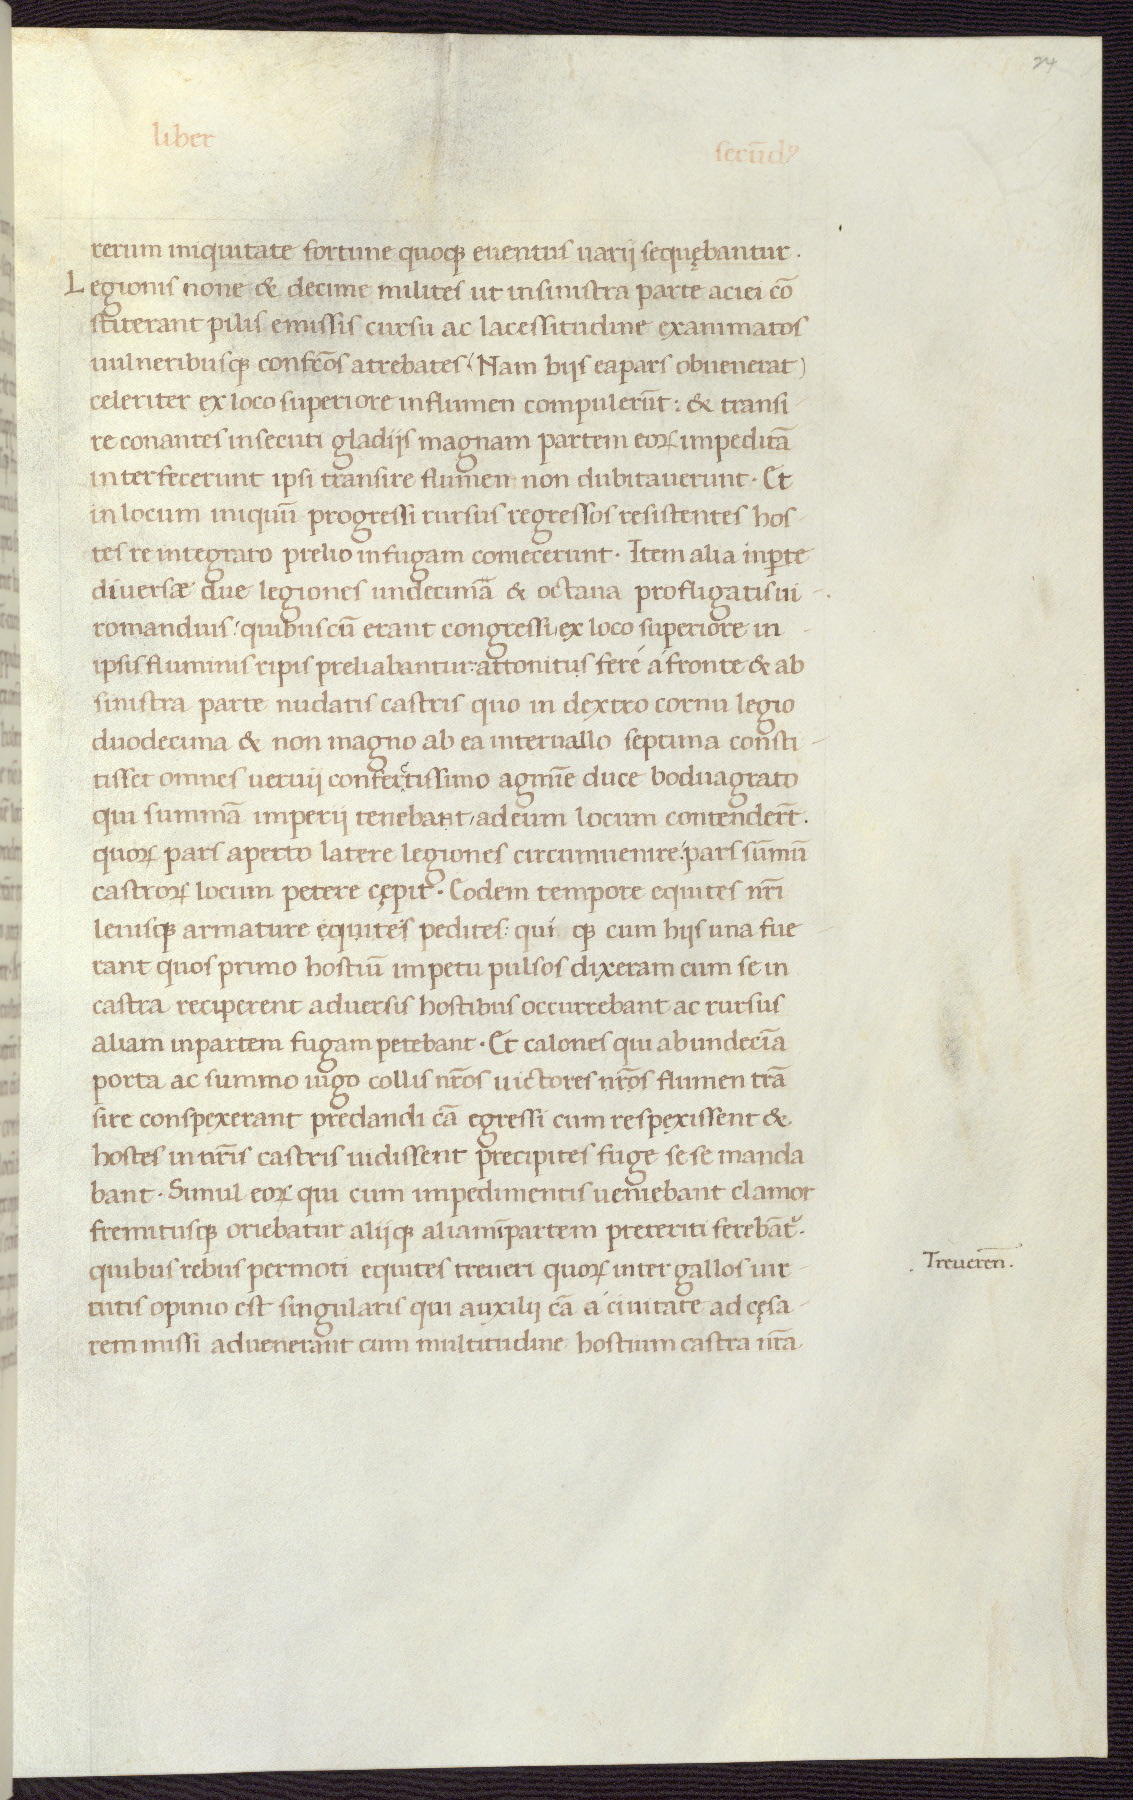 24
liber
secūdꝰ
rerum iniquitate fortune quoqꝫ euentus uarij sequębantur.
Legionis none & decime milites ut in sinistra parte aciei cō
stiterant pilis emissis cursu ac lacessitudine exanimatos
uulneribusqꝫ confec̄os atrebates (Nam hijs ea pars obuenerat)
celeriter ex loco superiore in flumen compulerūt: & transi
re conantes insecuti gladijs magnam partem eorꝝ impeditā
interfecerunt ipsi transire flumen non dubitauerunt. Et
in locum iniquū progressi rursus regressos resistentes hos
tes re integrato prelio in fugam coniecerunt. Item alia in ꝑte
diuersæ due legiones undecima & octaua profligatis ui
romanduis: quibus cū erant congressi, ex loco superiore in
ipsis fluminis ripis preliabantur: attonitus ferè à fronte & ab
sinistra parte nudatis castris quo in dextro cornu legio
duodecima & non magno ab ea interuallo septima consti
tisset omnes neruij confertissimo agmīe duce boduagrato
qui summā imperij tenebant, ad eum locum contenderūt.
quorꝝ pars aperto latere legiones circumuenire: pars sūmū
castrorꝝ locum petere cępit. Eodem tempore equites nr̄i
leuisqꝫ armature equites pedites: qui qꝫ cum hijs una fue
rant quos primo hostiū impetu pulsos dixeram cum se in
castra reciperent aduersis hostibus occurrebant ac rursus
aliam in partem fugam petebant. Et calones qui ab undecīa
porta ac summo iugo collis nr̄os uictores nr̄os flumen trā
sire conspexerant predandi cā egressi cum respexissent &
hostes in nr̄is castris uidissent precipites fuge se se manda
bant. Simul eorꝝ qui cum impedimentis ueniebant clamor
fremitusqꝫ oriebatur alijqꝫ aliam ī partem preteriti ferebāt᷑.
quibus rebus permoti equites treueri quorꝝ inter gallos uir
tutis opinio est singularis qui auxilij cā à ciuitate ad cęsa
rem missi aduenerant cum multitudine hostium castra nr̄a
. Treueren̄.